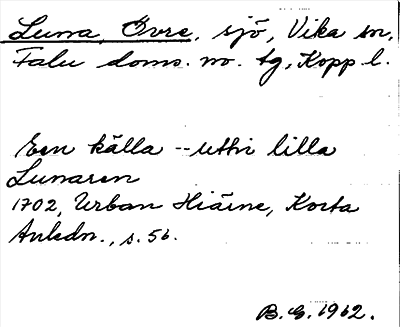 Lunna, Övre, sjö, Vika sn,
Falu doms. no. tg, Kopp. l.
Een källa -- uthi lilla
Lunaren
1702, Urban Hiärne, Korta
Anledn., s. 56.
B. E. 1962.